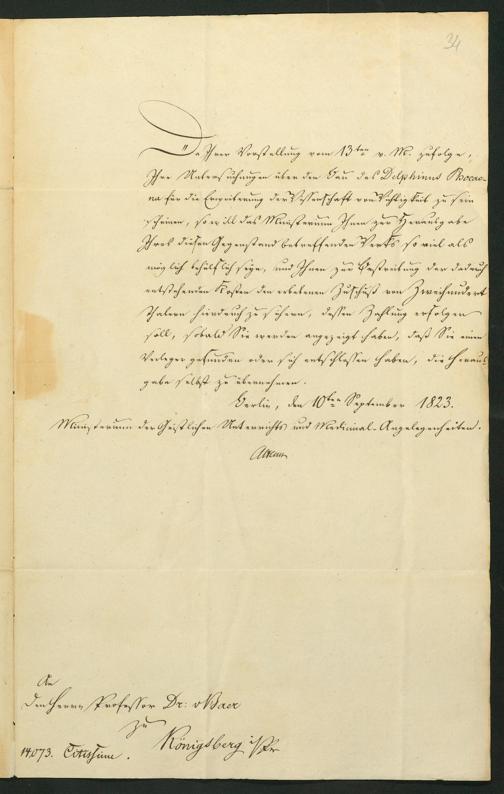 34
Da Ihrer Vorstellung vom 13ten v. M. zufolge,
Ihre Untersuchungen über den Bau des Delphinus Phocae-
na für die Erweiterung der Wissenschaft von Wichtigkeit zu sein
scheinen, so will das Ministerium Ihnen zur Herausgabe
Ihres diesen Gegenstand betreffenden Werks so viel als
möglich behülflich seyn, und Ihnen zur Bestreitung der dadurch
entstehenden Kosten den erbetenen Zuschuß von Zweihundert
Thalern hierdurch zusichern, dessen Zahlung erfolgen
soll, sobald Sie werden angezeigt haben, daß Sie einen
Verleger gefunden oder sich entschlossen haben, die Heraus-
gabe selbst zu übernehmen.
Berlin, den 10ten September 1823.
Ministerium der Geistlichen Unterrichts und Medicinal-Angelegenheiten.
Altenstein
An
den Herrn Professor Dr: v Baer
zu
Königsberg i/Pr
14073. Citissime.